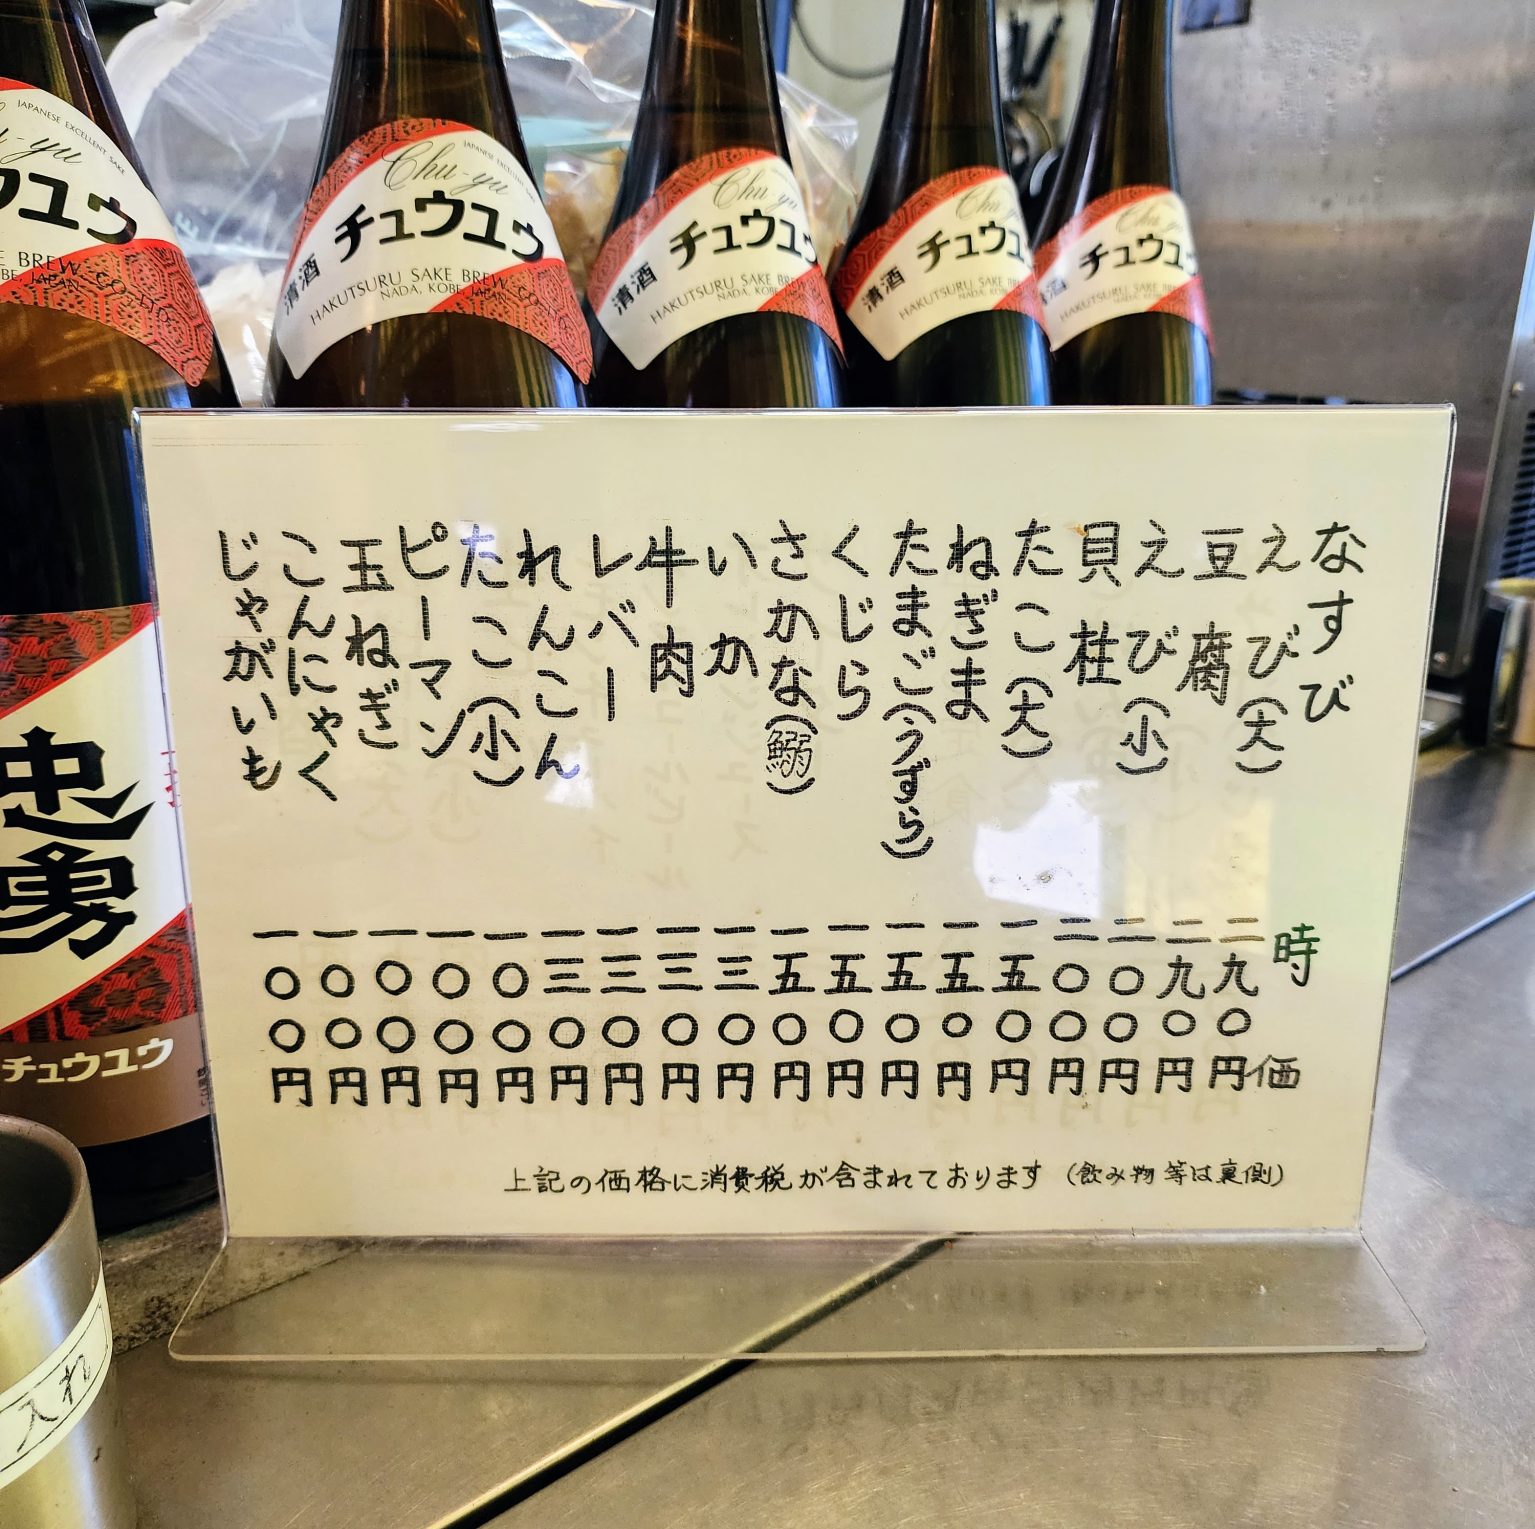 なすび 時価
えび(大) 二九〇円
豆腐 二九〇円
えび(小) 二〇〇円
貝柱 二〇〇円
たこ(大) 一五〇円
ねぎま 一五〇円
たまご(うずら) 一五〇円
くじら 一五〇円
さかな(鰯) 一五〇円
いか 一三〇円
牛肉 一三〇円
レバー 一三〇円
れんこん 一三〇円
たこ(小) 一〇〇円
ピーマン 一〇〇円
玉ねぎ 一〇〇円
こんにゃく 一〇〇円
じゃがいも 一〇〇円
上記の価格に消費税が含まれております (飲み物等は裏側)
JAPANESE EXCELLENT SAKE
ウユウ
BREW. CO., LTD.
KOBE, JAPAN
忠勇
チュウユウ
入れ
JAPANESE EXCELLENT SAKE
Chu-yu
清酒 チュウユウ
HAKUTSURU SAKE BREW. CO., LTD.
NADA, KOBE, JAPAN
Chu-yu
清酒 チュウユウ
HAKUTSURU SAKE BREW
NADA, KOBE
Chu-yu
清酒 チュウユウ
HAKUTSURU SAKE BREW
NADA, KOBE
Chu-yu
清酒 チュウユウ
HAKUTSURU SAKE BREW
NADA, KOBE